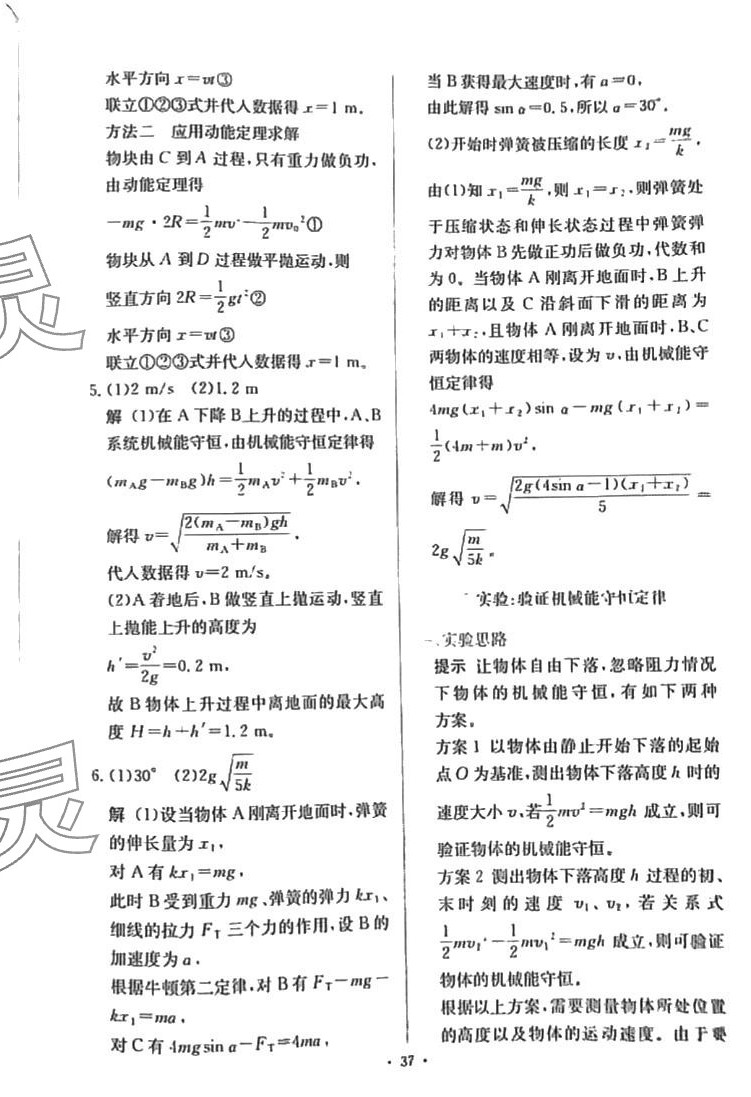 水平方向 x=vt③
联立①②③式并代人数据得 x=1 m。
方法二 应用动能定理求解
物块由 C 到 A 过程,只有重力做负功,
由动能定理得
-mg·2R=1/2mv²-1/2mv₀²①
物块从 A 到 D 过程做平抛运动,则
竖直方向 2R=1/2gt²②
水平方向 x=vt③
联立①②③式并代人数据得 x=1 m。
5. (1)2 m/s (2)1.2 m
解 (1)在 A 下降 B 上升的过程中,A、B
系统机械能守恒,由机械能守恒定律得
(m_A g-m_B g)h=1/2m_A v²+1/2m_B v²,
解得 v=√(2(m_A-m_B)gh/(m_A+m_B)),
代人数据得 v=2 m/s。
(2)A 着地后,B 做竖直上抛运动,竖直
上抛能上升的高度为
h'=v²/2g=0.2 m,
故 B 物体上升过程中离地面的最大高
度 H=h+h'=1.2 m。
6. (1)30° (2)2g√(m/5k)
解 (1)设当物体 A 刚离开地面时,弹簧
的伸长量为 x₁,
对 A 有 kx₁=mg,
此时 B 受到重力 mg、弹簧的弹力 kx₁、
细线的拉力 F_T 三个力的作用,设 B 的
加速度为 a,
根据牛顿第二定律,对 B 有 F_T-mg-
kx₁=ma,
对 C 有 4mgsin α-F_T=4ma,
当 B 获得最大速度时,有 a=0,
由此解得 sin α=0.5,所以 α=30°。
(2)开始时弹簧被压缩的长度 x₂=mg/k,
由(1)知 x₁=mg/k,则 x₁=x₂,则弹簧处
于压缩状态和伸长状态过程中弹簧弹
力对物体 B 先做正功后做负功,代数和
为 0。当物体 A 刚离开地面时,B 上升
的距离以及 C 沿斜面下滑的距离均为
x₁+x₂,且物体 A 刚离开地面时,B、C
两物体的速度相等,设为 v,由机械能守
恒定律得
4mg(x₁+x₂)sin α-mg(x₁+x₂)=
1/2(4m+m)v²,
解得 v=√(2g(4sin α-1)(x₁+x₂)/5)=
2g√(m/5k)。
实验:验证机械能守恒定律
一、实验思路
提示 让物体自由下落,忽略阻力情况
下物体的机械能守恒,有如下两种
方案。
方案 1 以物体由静止开始下落的起始
点 O 为基准,测出物体下落高度 h 时的
速度大小 v,若1/2mv²=mgh 成立,则可
验证物体的机械能守恒。
方案 2 测出物体下落高度 h 过程的初、
末时刻的速度 v₁、v₂,若关系式
1/2mv₂²-1/2mv₁²=mgh 成立,则可验证
物体的机械能守恒。
根据以上方案,需要测量物体所处位置
的高度以及物体的运动速度。由于要
· 37 ·
灵
灵